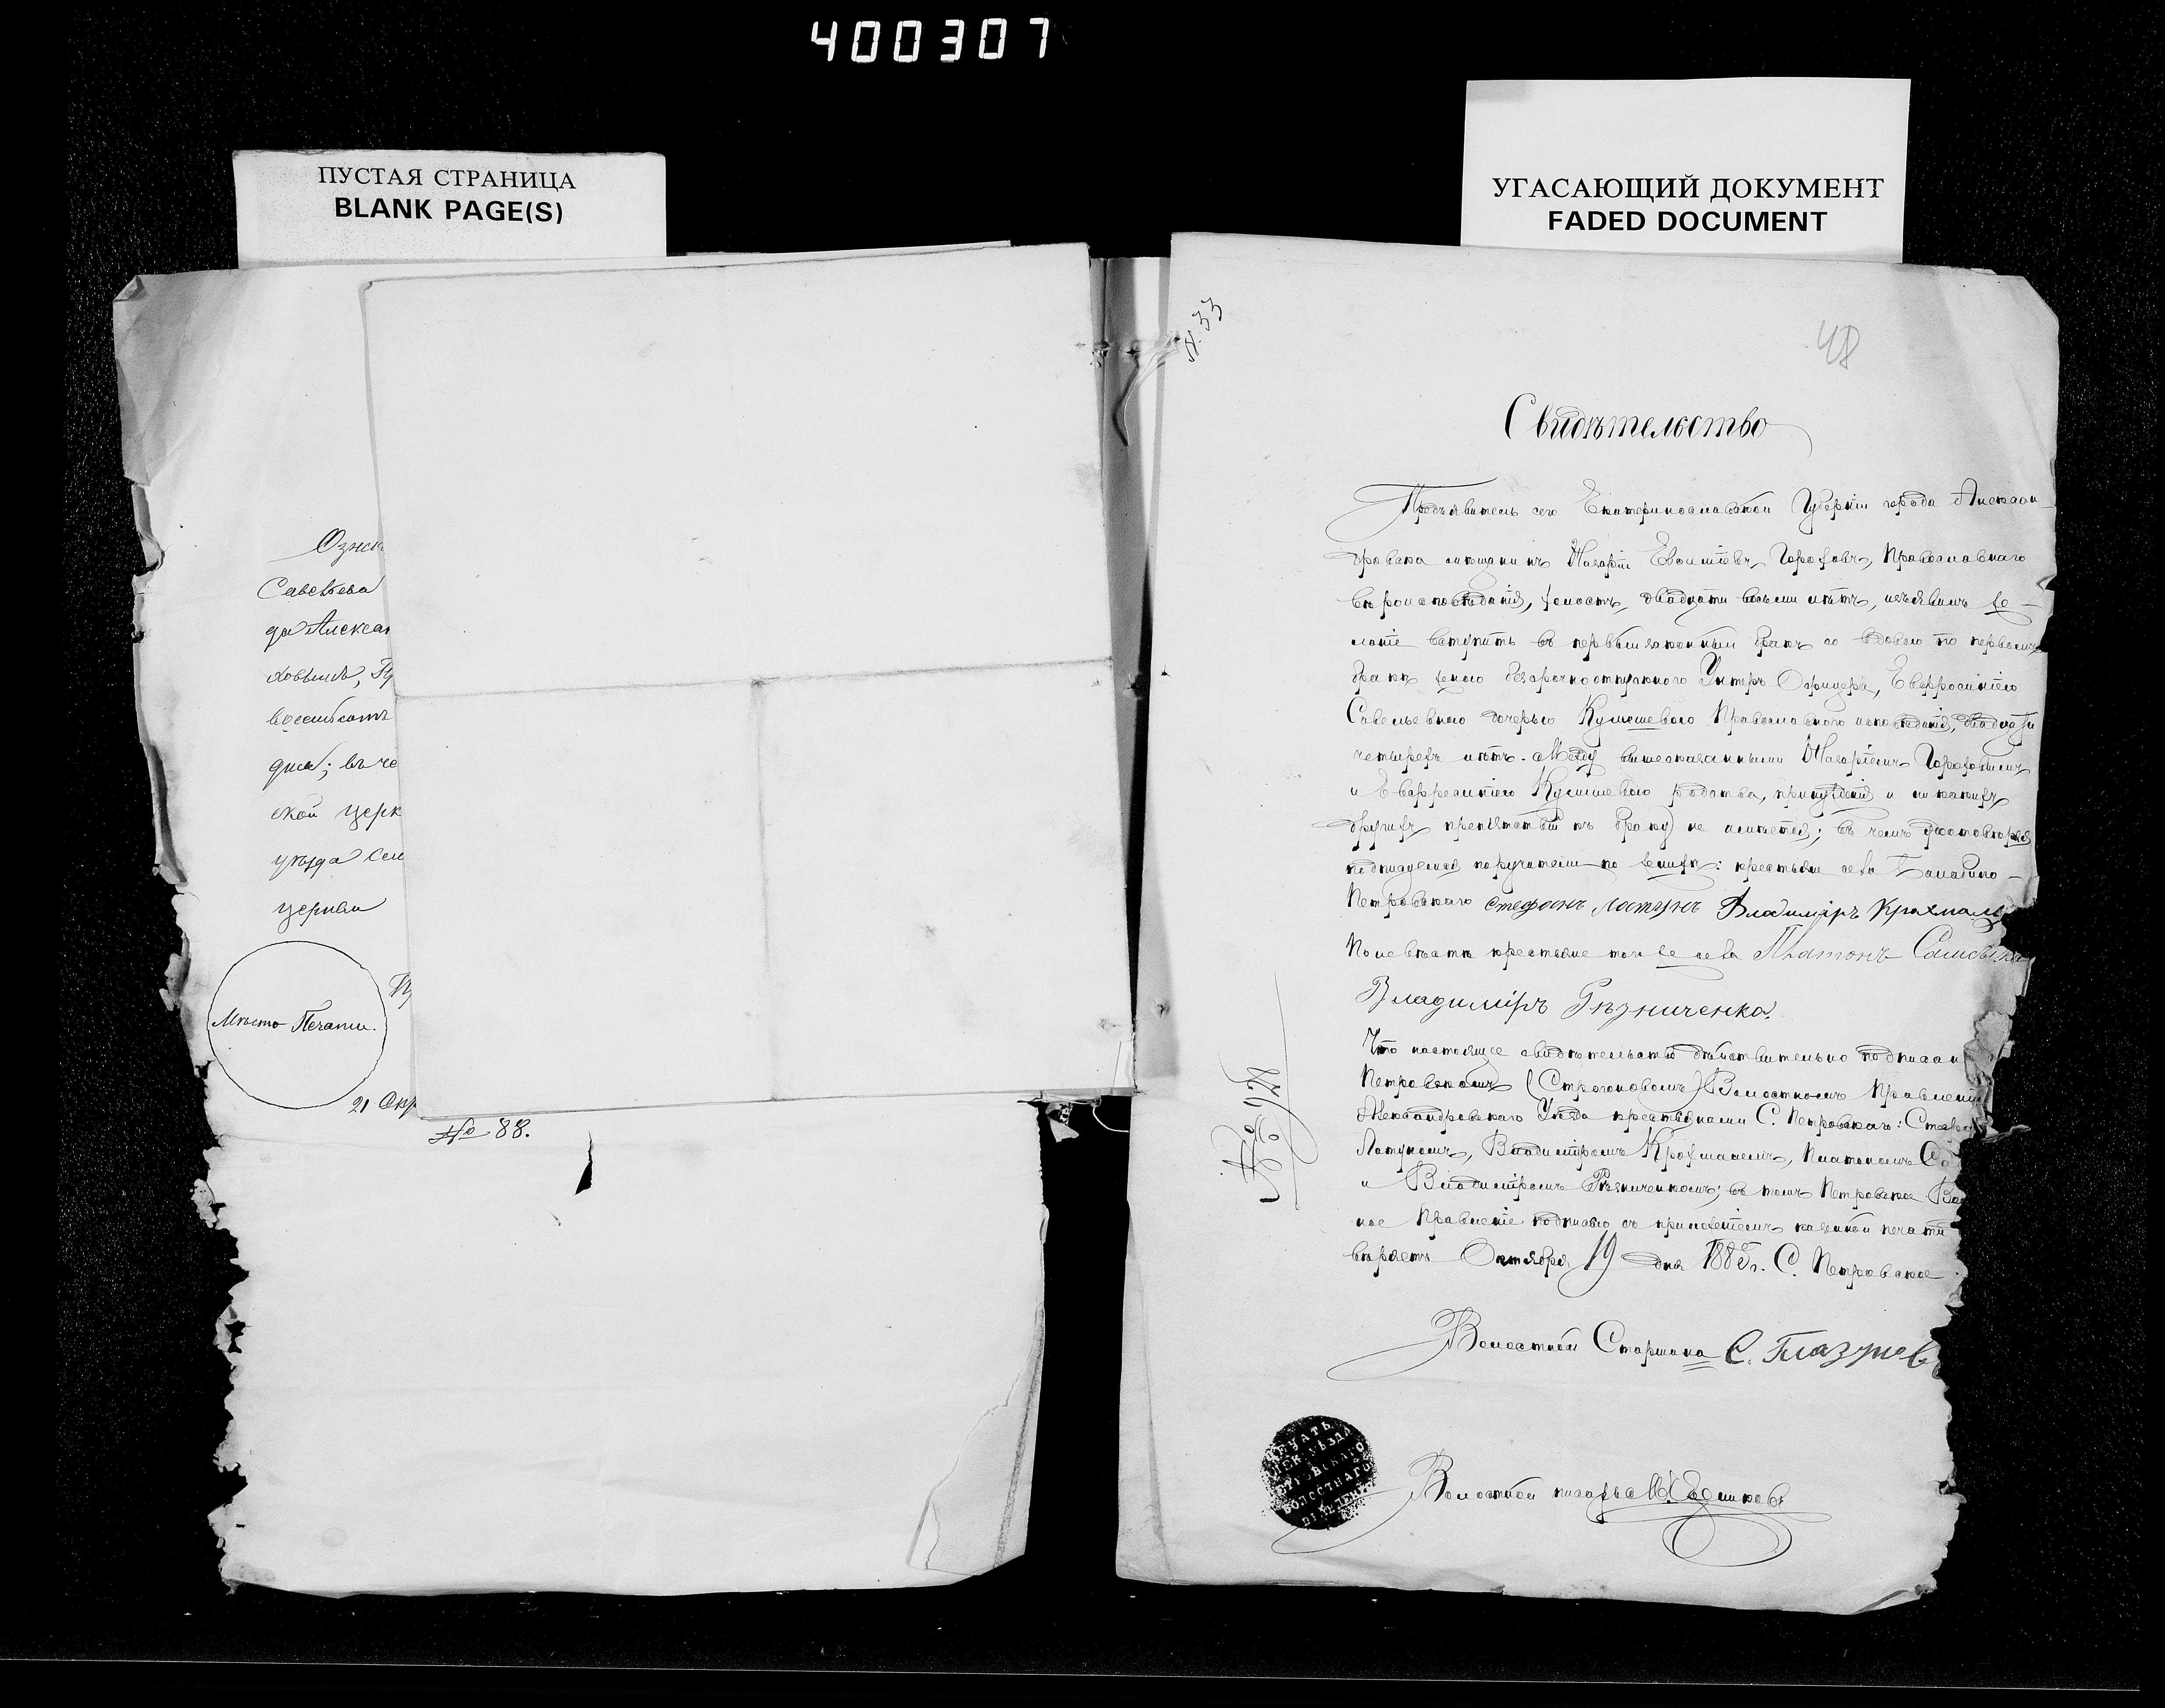 400307
ПУСТАЯ СТРАНИЦА
BLANK PAGE(S)
УГАСАЮЩИЙ ДОКУМЕНТ
FADED DOCUMENT
Савельева
да Алексан
ховымъ,
дня; въ че
ской церк
уѣзда сел
церкви
Мѣсто Печати.
21 Окт
№ 88.
48
Свидѣтельство
Предъявитель сего Екатеринославской Губерніи города Алексан
дровска мѣщанинъ Назарій Горохов, Православнаго
вѣроисповѣданія, холостъ, двадцати восьми лѣтъ, изъявилъ же-
ланіе вступить въ первый законный бракъ со вдовою по первому
браку женою безсрочноотпускного Унтеръ Офицера, Евфросиніею
Савельевною дочерью Кулешевою Православного исповѣданія, двадцати
четырехъ лѣтъ. Между вышесказанными Назаріемъ Гороховымъ
и Евфросиніею Кулешевою родства, принужденія и никакихъ
другихъ препятствій къ браку не имѣется; въ чемъ удостовѣряя
подписуемся поручатели по женихѣ: крестьяне села
Петровскаго Стефанъ Латунъ Владиміръ Крахмаль
По невѣстѣ крестьяне того же села Платонъ
Владиміръ Рѣзниченко.
Что настоящее свидѣтельство дѣйствительно подписан
Петровскомъ (Строгоновомъ) Волостномъ Правленіи
Александровскаго Уѣзда крестьянами С. Петровскаго: Стефа
Латуномъ, Владиміромъ Крахмалемъ, Платономъ Са
и Владиміромъ Рѣзниченкомъ; въ томъ Петровское Вол
ное Правленіе подписью съ приложеніемъ казенной печати
вѣряетъ Октября 19 дня 1885 г. С. Петровское
Волостной Старшина С. Глазунов
Волостной писарь
№ 928
ПЕЧАТЬ
АЛЕК. УѢЗДА
ПЕТРОВСКАГО
ВОЛОСТНАГО